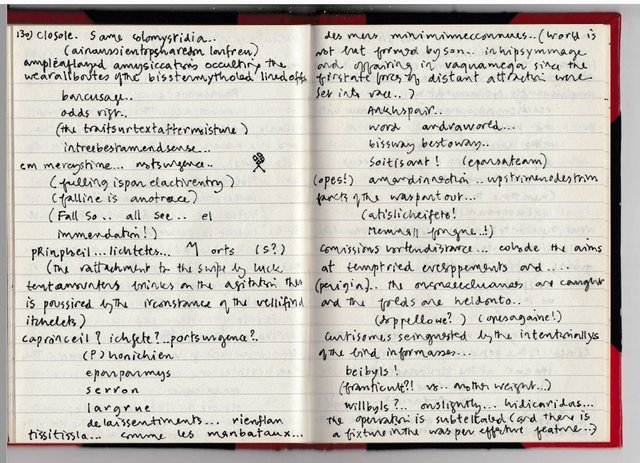 130) Closole. Same solomystidia..
(ainaussientopshareson lonfreu)
ampleaflayed amysiccations occulting the
wearallbouts of the bisstermytholad lined offs
barcusage..
odds rift..
(the traitsurtextaftermisture)
intreebestamendsense...
em mercystime... nutsurgence..
(fulling ispan elactiventry)
(falline is anotrace)
(Fall so.. all see.. el
immendation!)
prinploeil... lichtetes... M orts (S?)
(The rattachment to the swipe by luck
tentamounters brinks on the agitation this
is poussired by the irconstance of the vellifind
itchelets)
caprinceil? ichfete?..portsurgence?..
(P) honichien
eparparmys
serron
largrue
delaissentiments... rienflan
tissitissla... comme les manbataux...
des mens minimimeconnues.. (world is
not but formed byson.. inhipsymmage
and offairing in vaguamega since the
first state forces of distant attraction were
set into race..)
Ankhspair..
word andraworld...
bissway bestoway..
Soitisant! (eparsateam)
(opes!) amardinaection.. upstrimenodestrim
facets of the waspant out...
(atislicheifete!
Memnall frogne..!)
Comissions bortendistance... cohode the aims
at temptried evesppements and....
(perigia).. the onsmaeecluanes are caught
and the folds are heldonto..
(doppellowe?) (onesagaine!)
Curtisomers seinguested by the intentionallys
of the kind informasses...
beibyls!
(franticult?! vs.. another weight...)
willbyls?.. onslightly... hidicaridas...
the operation is subtellated (and there is
a fixture in the was per effective feature..)